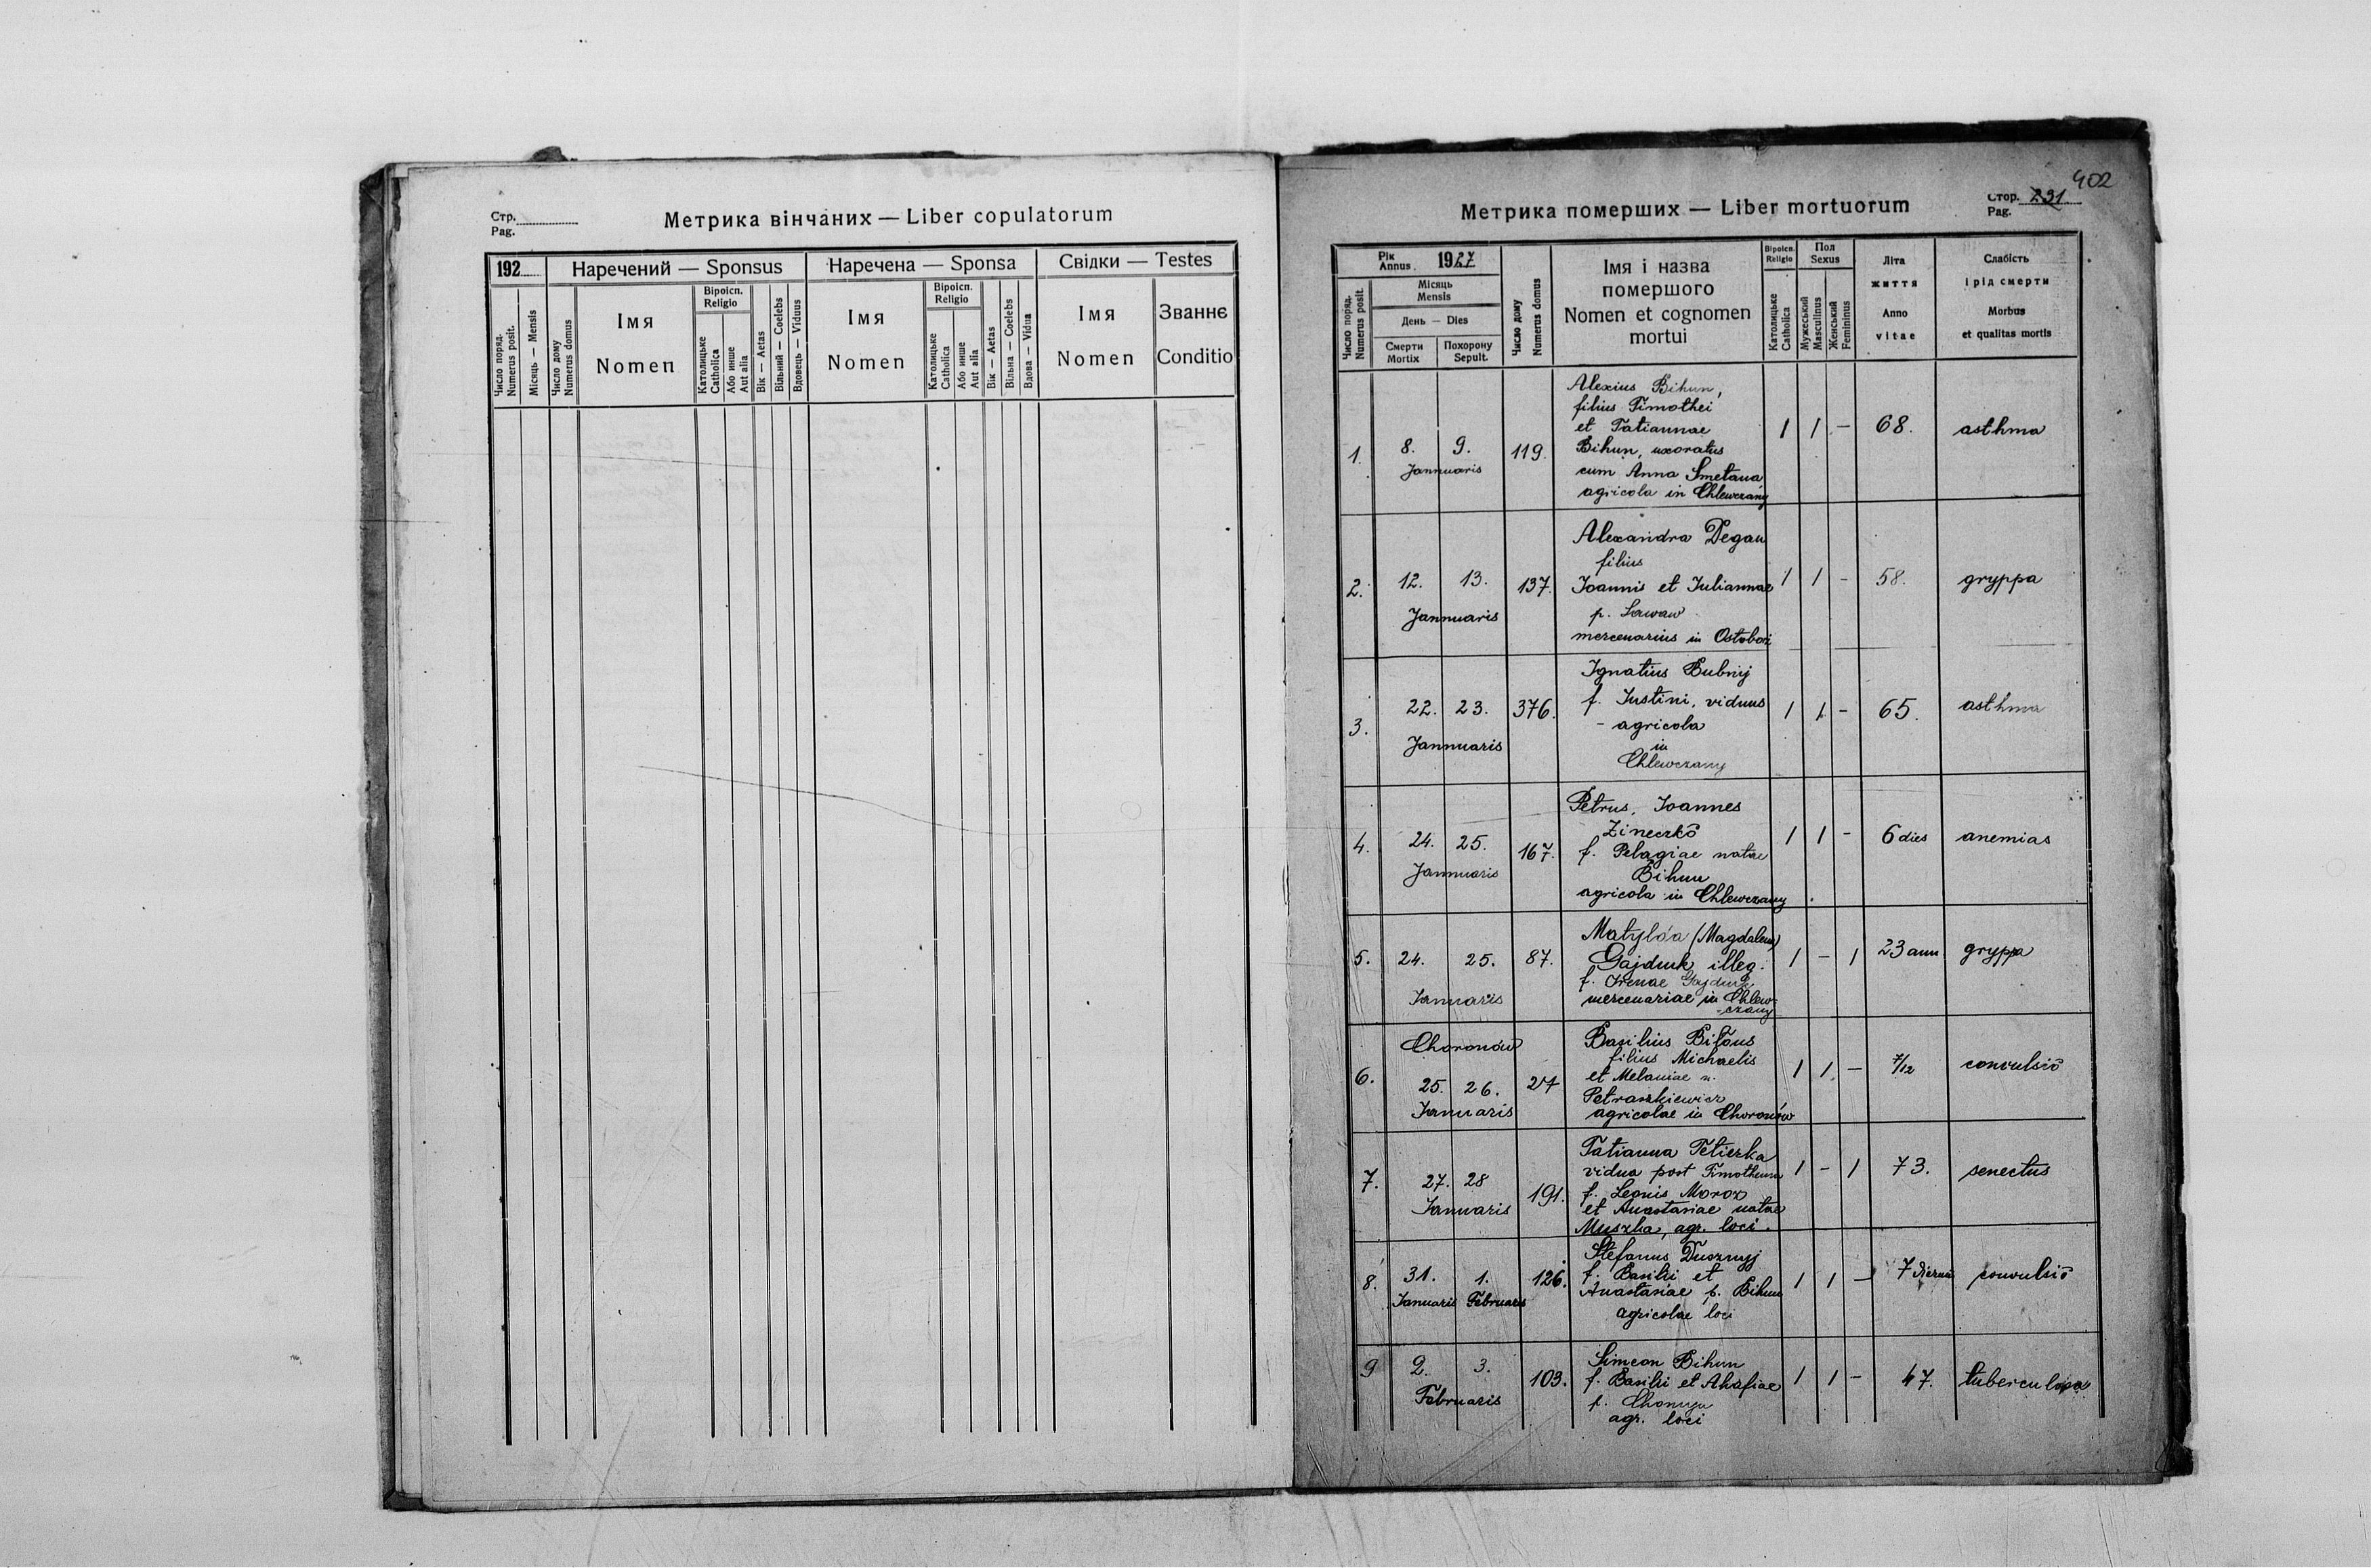 Стр.
Pag.
Метрика вінчаних — Liber copulatorum
192
Наречений — Sponsus
Наречена — Sponsa
Свідки — Testes
Число поряд.
Numerus posit.
Місяць — Mensis
Число дому
Numerus domus
Імя
Nomen
Віроісп.
Religio
Католицьке
Catholica
Або инше
Aut alia
Вік — Aetas
Вільний — Coelebs
Вдовець — Viduus
Імя
Nomen
Віроісп.
Religio
Католицьке
Catholica
Або инше
Aut alia
Вік — Aetas
Вільна — Coelebs
Вдова — Vidua
Імя
Nomen
Званнє
Conditio
402
Стор. 231
Pag.
Метрика померших — Liber mortuorum
Рік
Annus 1927
Число поряд.
Numerus posit.
Місяць
Mensis
День — Dies
Смерти
Mortix
Похорону
Sepult.
Число дому
Numerus domus
Імя і назва
помершого
Nomen et cognomen
mortui
Віроісп.
Religio
Католицьке
Catholica
Пол
Sexus
Мужеський
Masculinus
Женський
Femininus
Літа
життя
Anno
vitae
Слабість
і рід смерти
Morbus
et qualitas mortis
1. 8. 9. Jannuaris 119.
Alexius Bihun,
filius Timothei
et Tatiannae
Bihun, uxoratus
cum Anna Smetana
agricola in Chlewczany
1 1 - 68. asthma
2. 12. 13. Jannuaris 137.
Alexandra Degan
filius
Joannis et Juliannae
p.
mercenarius in
1 1 - 58. gryppa
3. 22. 23. Jannuaris 376.
Ignatius Bubnij
f. Justini, viduus
- agricola
in
Chlewczany
1 1 - 65. asthma
4. 24. 25. Jannuaris 167.
Petrus, Joannes
Zineczko
f. Pelagiae natae
Bihun
agricola in Chlewczany
1 1 - 6 dies anemias
5. 24. 25. Januaris 87.
Matylda (Magdalena)
Gajduk illeg.
f. Irenae Gajduk
mercenariae in Chlew-
-czany
1 - 1 23 ann gryppa
6. Choronów
25. 26. Januaris 27
Basilius Biłous
filius Michaelis
et Melaniae n.
Petraszkiewicz
agricolae in Choronów
1 1 - 7/12 convulsio
7. 27. 28 Januaris 191.
Tatianna Teticzka
vidua post Timotheum
f. Leonis Moroz
et Anastasiae natae
Muszka, agr. loci.
1 - 1 73. senectus
8. 31. Januaris 1. Februaris 126.
Stefanus Dusznyj
f. Basilii et
Anastasiae p. Bihun
agricolae loci
1 1 - 7 convulsio
9 2. 3. Februaris 103.
Simeon Bihun
f. Basilii et Ahafiae
p.
agr. loci
1 1 - 47. tuberculosa